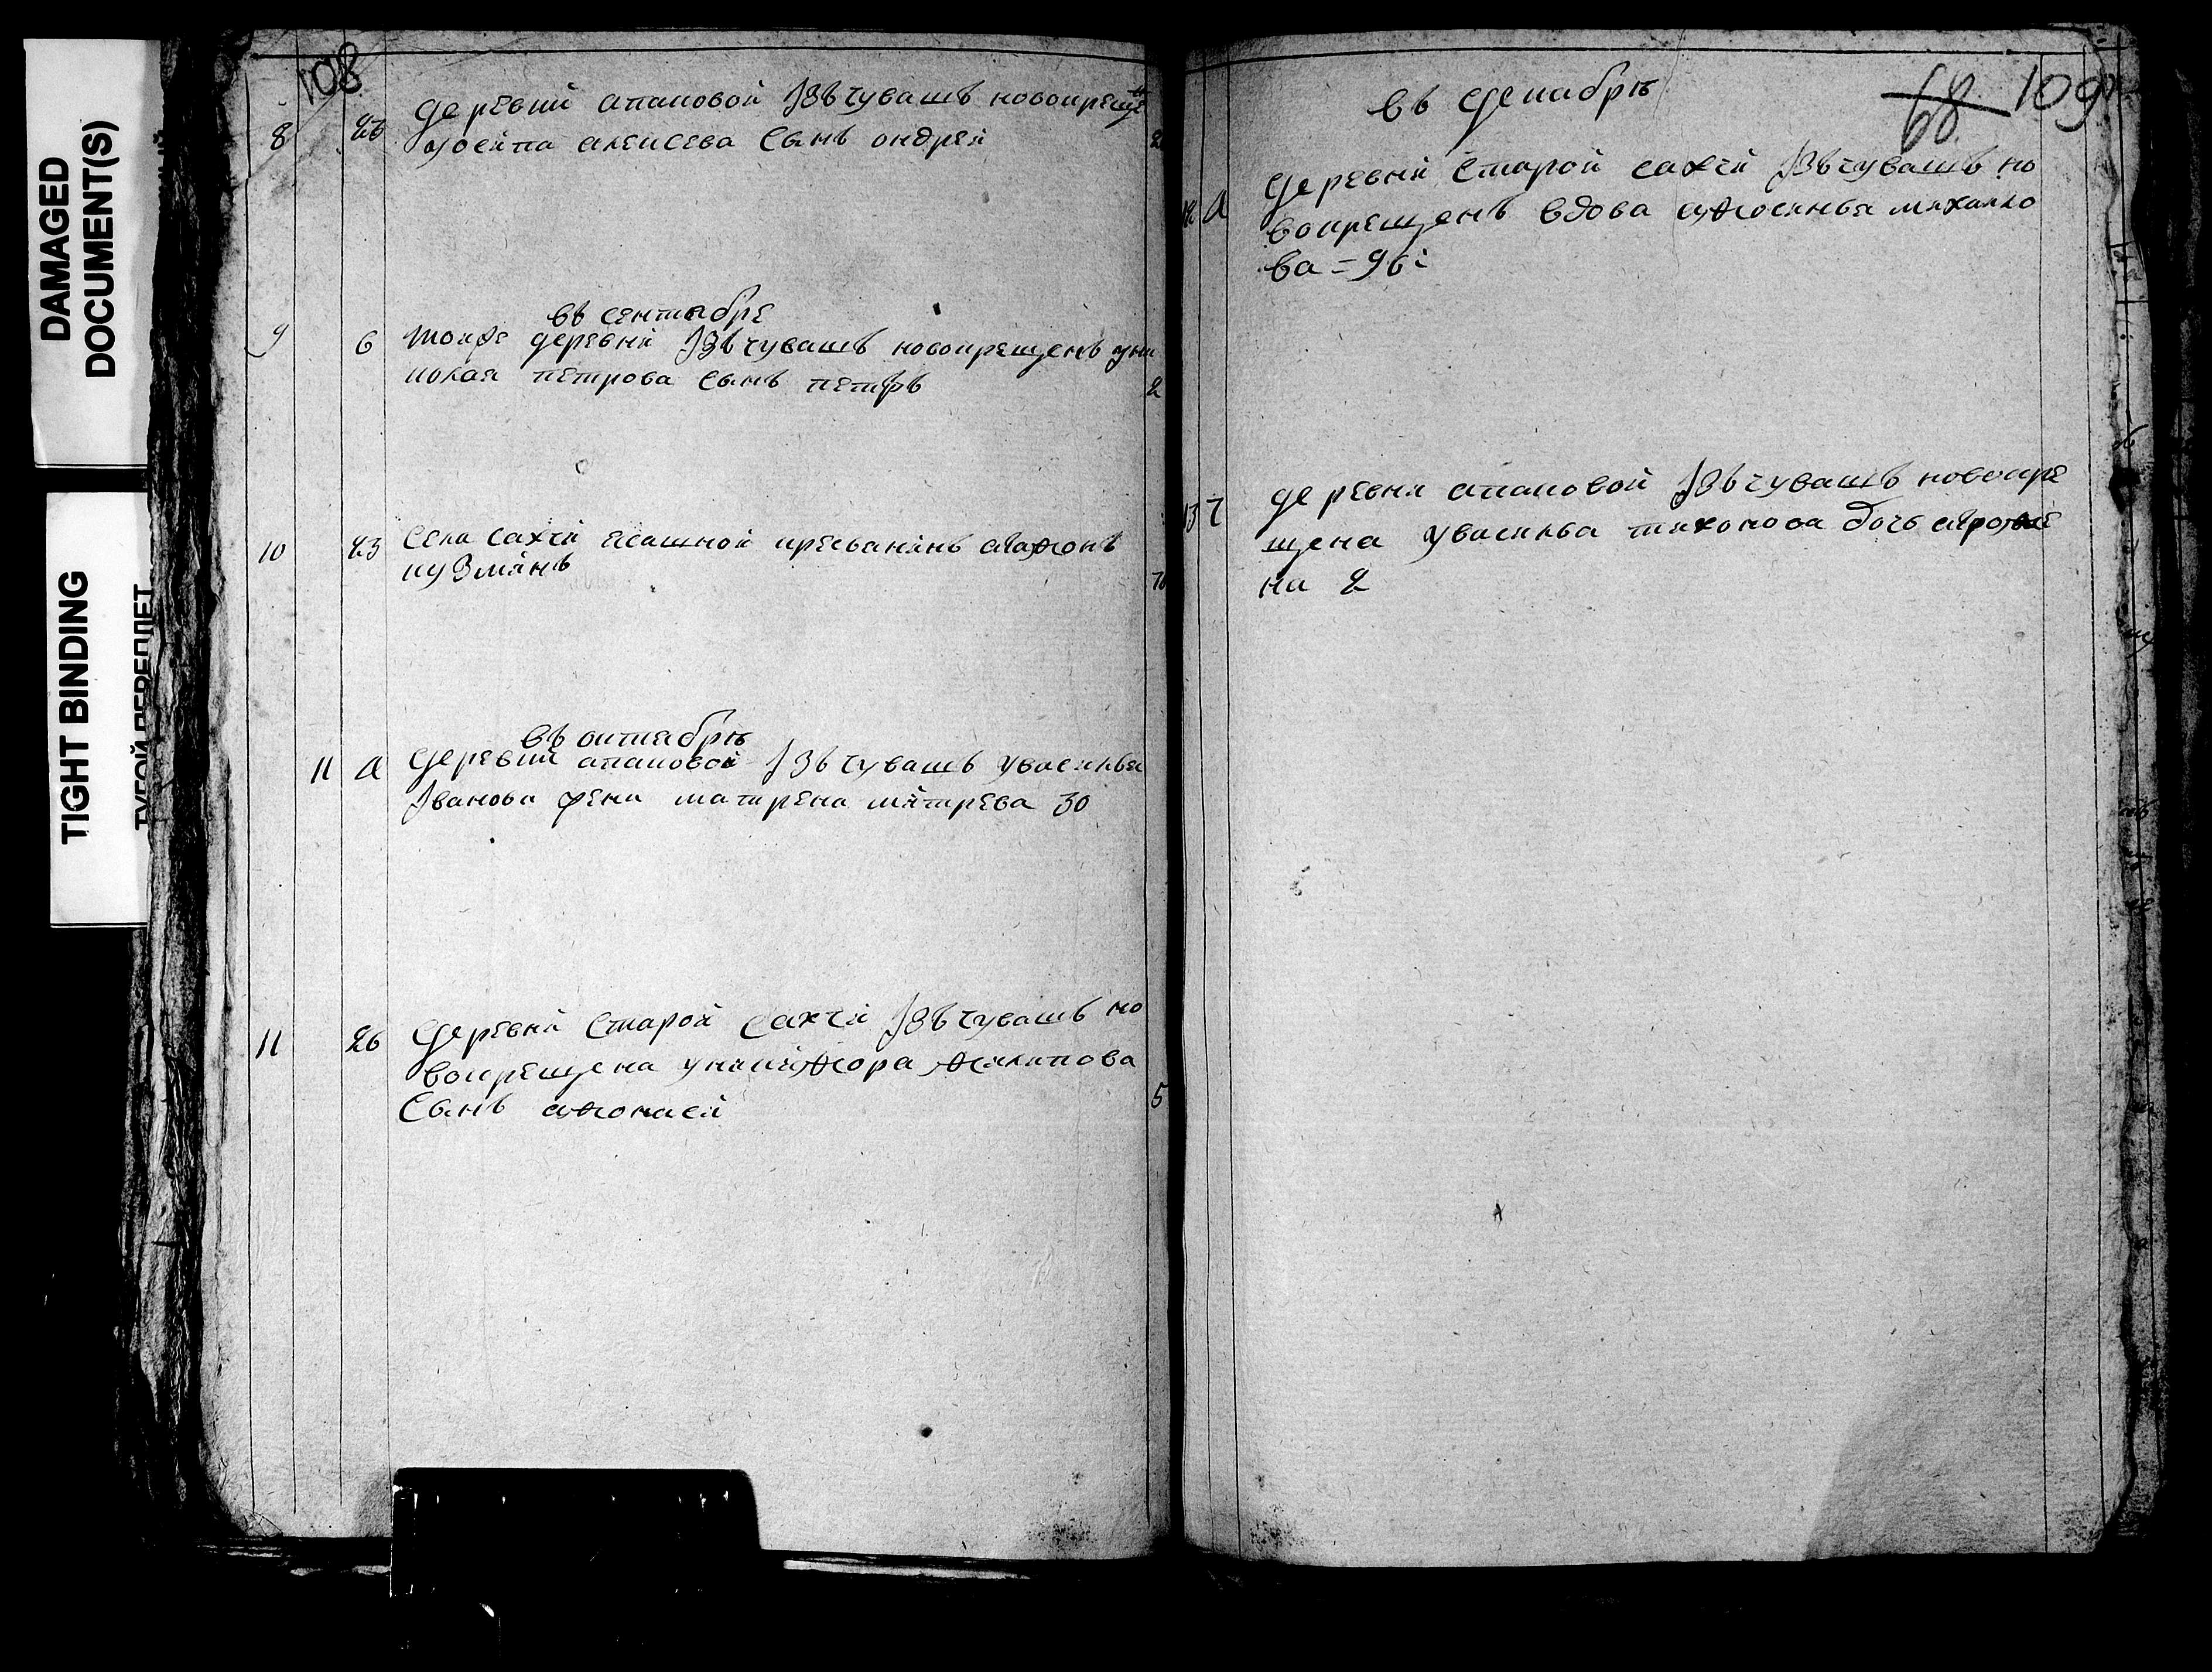 DAMAGED
DOCUMENT(S)
TIGHT BINDING
ТУГОЙ ПЕРЕПЛЕТ
108
8 26 деревни апаковой Iзъ чувашъ новокреще
уосипа алеѯеева сынъ ондрей 2
въ сентебре
9 6 тоиже деревни Iзъ чувашъ новокрещенъ уни
колая петрова сынъ петръ 2
10 23 села сахчи ясашной кресьанинъ агафонъ
кузминъ 70
въ октебрѣ
11 а деревни апаковой Iзъ чувашъ увасилья
Iванова жена матрена митрева 30
11 26 деревни старой сахчи Iзъ чувашъ но
вокрещена уникифора филипова
сынъ афонасей 5
68 109
68
въ декабрѣ
12 а деревни старой сахчи Iзъ чувашъ но
вокрещенъ вдова афросинья михаило
ва = 96
13 7 деревни апаковой Iзъ чувашъ новокре
щена увасилья тихонова дочь
на 2